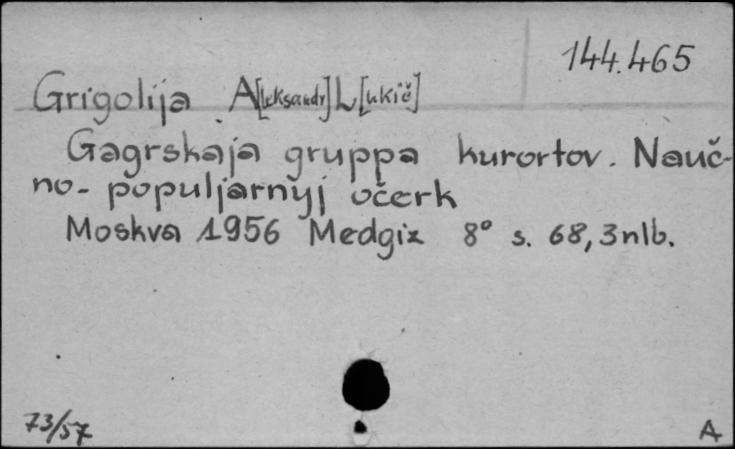 144.465
Grigolija A[leksandr] L[ukič]
Gagrskaja gruppa kurortov. Nauč-
no-populjarnyj očerk
Moskva 1956 Medgiz 8° s. 68, 3 nlb.
73/57
A